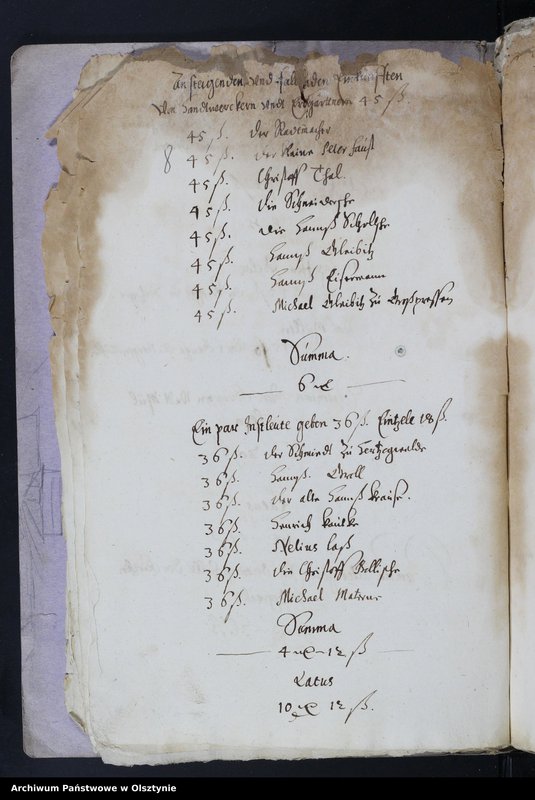 An steigenden und fallenden Einkunfften
Von Handtwerckern undt Eiggärtnern 45 ß
45 ß. Der Rademacher
8 45 ß. Der kleine Peter Faust
45 ß. Christoff Thal.
45 ß. Die Schneidersche
45 ß. Die Hanß Scholtzke
45 ß. Hanß Gleibitz
45 ß. Hanß Eisermann
45 ß. Michael Gleibitz zu Großpressen
Summa.
6 mk
Ein par Instleute geben 36 ß. Eintzele 18 ß.
36 ß. Der Schmiedt zu Hertzogwalde
36 ß. Hanß. Grall
36 ß. Der alte Hanß Krause.
36 ß. Henrich
36 ß. Nelius laß
36 ß. Die Christoff Bellische
36 ß. Michael Materne
Summa
4 mk 12 ß
Latus
10 mk 12 ß.
Archiwum Państwowe w Olsztynie